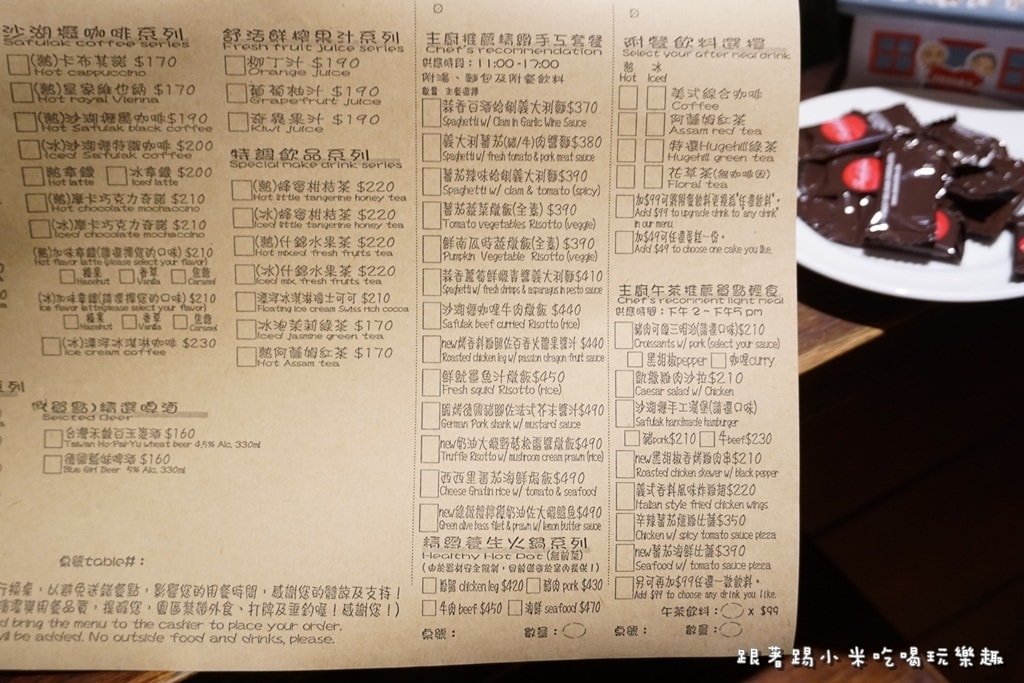 沙湖壢咖啡系列
Safulak coffee series
(熱)卡布其諾 $170
Hot cappuccino
(熱)皇家維也納 $170
Hot royal Vienna
(熱)沙湖壢黑咖啡 $190
Hot Safulak black coffee
(冰)沙湖壢特調咖啡 $200
Iced Safulak coffee
熱拿鐵 冰拿鐵 $200
Hot latte Iced latte
(熱)摩卡巧克力奇諾 $210
Hot chocolate mochaccino
(冰)摩卡巧克力奇諾 $210
Iced chocolate mochaccino
(熱)加味拿鐵(請選擇您的口味) $210
Hot flavor latte(please select your flavor)
榛果 香草 焦糖
Hazelnut Vanilla Caramel
(冰)加味拿鐵(請選擇您的口味) $210
Ice flavor latte(please select your flavor)
榛果 香草 焦糖
Hazelnut Vanilla Caramel
(冰)漂浮冰淇淋咖啡 $230
Ice cream coffee
系列
精選啤酒
Selcted Beer
$160
Taiwan Ho-Pai-Yu wheat beer 4.5% Alc. 330ml
德國藍妹啤酒 $160
Blue Girl Beer 5% Alc. 330ml
桌號table#:
以避免送錯餐點,影響您的用餐時間,感謝您的體諒及支持!
d bring the menu to the cashier to place your order.
will be added. No outside food and drinks, please.
舒活鮮榨果汁系列
Fresh fruit juice series
柳丁汁 $190
Orange juice
葡萄柚汁 $190
Grapefruit juice
奇異果汁 $190
Kiwi juice
特調飲品系列
Special make drink series
(熱)蜂蜜柑桔茶 $220
Hot little tangerine honey tea
(冰)蜂蜜柑桔茶 $220
Iced little tangerine honey tea
(熱)什錦水果茶 $220
Hot mixed fresh fruits tea
(冰)什錦水果茶 $220
Iced mix fresh fruits tea
漂浮冰淇淋瑞士可可 $210
Floating ice cream Swiss rich cocoa
冰泡茉莉綠茶 $170
Iced jasmine green tea
熱阿薩姆紅茶 $170
Hot Assam tea
主廚推薦精緻手工套餐
Chef's recommendation
供應時段:11:00-17:00
附湯、麵包及附餐飲料
數量 主餐選擇
蒜香白酒蛤蜊義大利麵$370
Spaghetti w/ Clam in Garlic Wine Sauce
義大利蕃茄(豬/牛)肉醬麵$380
Spaghetti w/ fresh tomato & pork meat sauce
蕃茄辣味蛤蜊義大利麵$390
Spaghetti w/ clam & tomato (spicy)
蕃茄蔬菜燉飯(全素) $390
Tomato vegetables Risotto (veggie)
鮮南瓜時蔬燉飯(全素) $390
Pumpkin Vegetable Risotto (veggie)
蒜香蘆筍鮮蝦青醬義大利麵$410
Spaghetti w/ fresh shrimps & asparagus in pesto sauce
沙湖壢咖哩牛肉燉飯 $440
Safulak beef curried Risotto (rice)
new烤香料雞腿佐百香火龍果醬汁 $440
Roasted chicken leg w/ passion dragon fruit sauce
鮮魷墨魚汁燉飯$450
Fresh squid Risotto (rice)
脆烤德國豬腳佐法式芥末醬汁$490
German Pork shank w/ mustard sauce
new奶油大蝦野菇松露醬燉飯$490
Truffle Risotto w/ mushroom cream prawn (rice)
西西里蕃茄海鮮焗飯$490
Cheese Gratin rice w/ tomato & seafood
$490
Green olive bass filet & prawn w/ lemon butter sauce
精緻養生火鍋系列
Healthy Hot Pot
雞腿 chicken leg $420 豬肉 pork $430
牛肉 beef $450 海鮮 seafood $470
桌號: 數量:
附餐飲料選擇
Select your after meal drink
熱 冰
Hot Iced
美式綜合咖啡
Coffee
阿薩姆紅茶
Assam red tea
特選Hugehill綠茶
Hugehill green tea
花草茶(無咖啡因)
Floral tea
加$99可將附餐飲料更換為"任選飲料"。
Add $99 to upgrade drink to any drink"
in our menu.
加$49可任選蛋糕一份。
Add $49 to choose one cake you like.
主廚午茶推薦單點輕食
Chef's recomment light meal
供應時間:下午 2~下午5 pm
豬肉可頌三明治(請選口味)$210
Croissants w/ pork (select your sauce)
黑胡椒pepper 咖哩curry
凱撒雞肉沙拉 $210
Caesar salad w/ Chicken
沙湖壢手工漢堡(請選口味)
Safulak handmade hamburger
豬pork$210 牛beef$230
new黑胡椒香烤雞肉串$210
Roasted chicken skewer w/ black pepper
義式香料風味炸雞翅$220
Italian style fried chicken wings
辛辣蕃茄燻雞比薩$350
Chicken w/ spicy tomato sauce pizza
new蕃茄海鮮比薩$390
Seafood w/ tomato sauce pizza
另可再加$99任選一款飲料。
Add $99 to choose any drink you like.
午茶飲料: x $99
桌號: 數量:
跟著踢小米吃喝玩樂趣